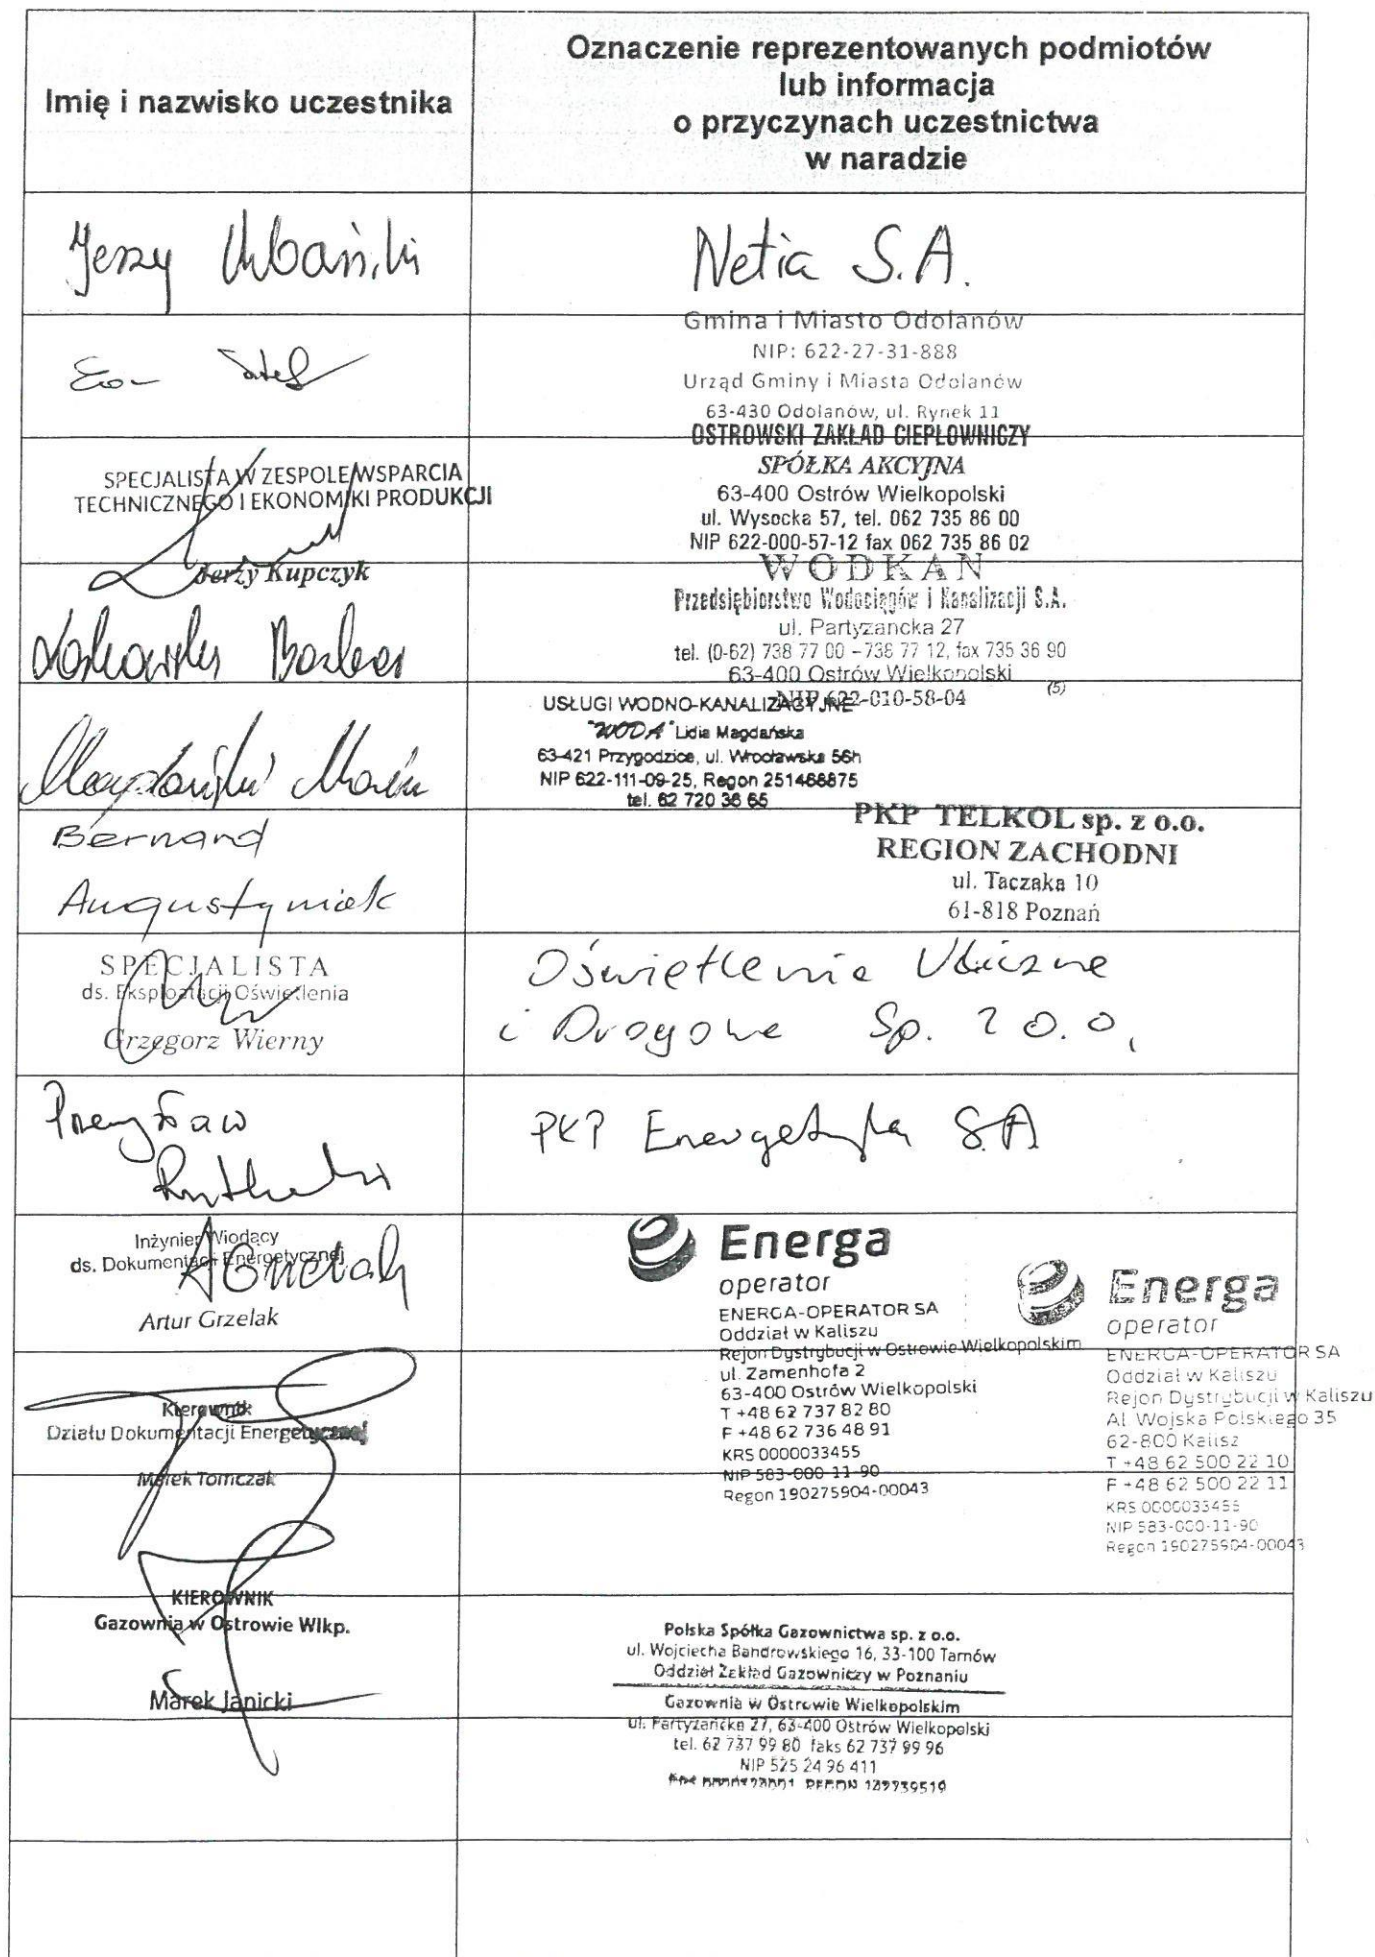 Imię i nazwisko uczestnika
Oznaczenie reprezentowanych podmiotów
lub informacja
o przyczynach uczestnictwa
w naradzie
Jerzy Urbański
Netia S.A.
Gmina i Miasto Odolanów
NIP: 622-27-31-888
Urząd Gminy i Miasta Odolanów
63-430 Odolanów, ul. Rynek 11
SPECJALISTA W ZESPOLE WSPARCIA
TECHNICZNEGO I EKONOMIKI PRODUKCJI
Jerzy Kupczyk
OSTROWSKI ZAKŁAD CIEPŁOWNICZY
SPÓŁKA AKCYJNA
63-400 Ostrów Wielkopolski
ul. Wysocka 57, tel. 062 735 86 00
NIP 622-000-57-12 fax 062 735 86 02
WODKAN
Przedsiębiorstwo Wodociągów i Kanalizacji S.A.
ul. Partyzancka 27
tel. (0-62) 738 77 00 – 738 77 12, fax 735 36 90
63-400 Ostrów Wielkopolski
NIP 622-010-58-04
(5)
Magdański Marcin
USŁUGI WODNO-KANALIZACYJNE
"WODA" Lidia Magdańska
63-421 Przygodzice, ul. Wrocławska 56h
NIP 622-111-09-25, Regon 251468875
tel. 62 720 36 65
Bernard
Augustyniak
PKP TELKOL sp. z o.o.
REGION ZACHODNI
ul. Taczaka 10
61-818 Poznań
SPECJALISTA
ds. Eksploatacji Oświetlenia
Grzegorz Wierny
Oświetlenie Uliczne
i Drogowe Sp. z o.o.
Przemysław
PKP Energetyka S.A
Inżynier Wiodący
ds. Dokumentacji Energetycznej
AGrzelak
Artur Grzelak
Energa
operator
ENERGA-OPERATOR SA
Oddział w Kaliszu
Rejon Dystrybucji w Ostrowie Wielkopolskim
ul. Zamenhofa 2
63-400 Ostrów Wielkopolski
T +48 62 737 82 80
F +48 62 736 48 91
KRS 0000033455
NIP 583-000-11-90
Regon 190275904-00043
Energa
operator
ENERGA-OPERATOR SA
Oddział w Kaliszu
Rejon Dystrybucji w Kaliszu
Al. Wojska Polskiego 35
62-800 Kalisz
T +48 62 500 22 10
F +48 62 500 22 11
KRS 0000033455
NIP 583-000-11-90
Regon 190275904-00043
Kierownik
Działu Dokumentacji Energetycznej
Marek Tomczak
KIEROWNIK
Gazownia w Ostrowie Wlkp.
Marek Janicki
Polska Spółka Gazownictwa sp. z o.o.
ul. Wojciecha Bandrowskiego 16, 33-100 Tarnów
Oddział Zakład Gazowniczy w Poznaniu
Gazownia w Ostrowie Wielkopolskim
ul. Partyzancka 27, 63-400 Ostrów Wielkopolski
tel. 62 737 99 80 faks 62 737 99 96
NIP 525 24 96 411
REGON 142739519